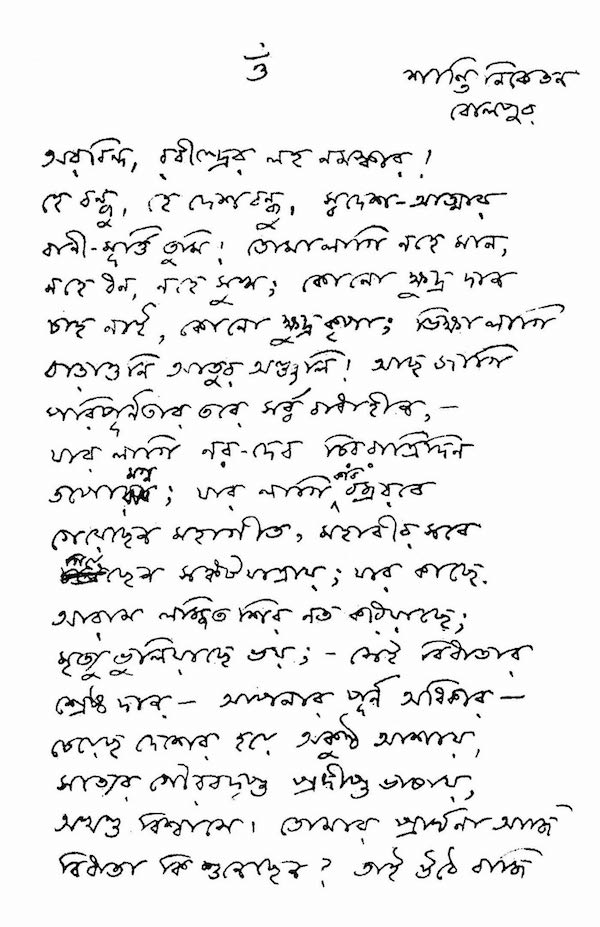 ওঁ
শান্তিনিকেতন
বোলপুর
অরবিন্দ, রবীন্দ্রের লহ নমস্কার!
হে বন্ধু, হে দেশবন্ধু, স্বদেশ-আত্মার
বাণী-মূর্ত্তি তুমি! তোমা লাগি নহে মান,
নহে ধন, নহে সুখ; কোনো ক্ষুদ্র দান
চাহ নাই, কোনো ক্ষুদ্র কৃপা; ভিক্ষা লাগি
বাড়াওনি আতুর অঞ্জলি! আছ জাগি
পরিপূর্ণতার তরে সর্ব্ববাধাহীন,—
যার লাগি নর-দেব চিররাত্রিদিন
তপোমগ্ন; যার লাগি কবি বজ্ররবে
গেয়েছেন মহাগীত, মহাবীর সবে
গিয়েছেন সঙ্কটযাত্রায়; যার কাছে
আরাম লজ্জিত শির নত করিয়াছে;
মৃত্যু ভুলিয়াছে ভয়;— সেই বিধাতার
শ্রেষ্ঠ দান— আপনার পূর্ণ অধিকার—
চেয়েছ দেশের হয়ে অকুণ্ঠ আশায়,
সত্যের গৌরবদৃপ্ত প্রদীপ্ত ভাষায়,
অখণ্ড বিশ্বাসে। তোমার প্রার্থনা আজি
বিধাতা কি শুনেছেন? তাই উঠে বাজি